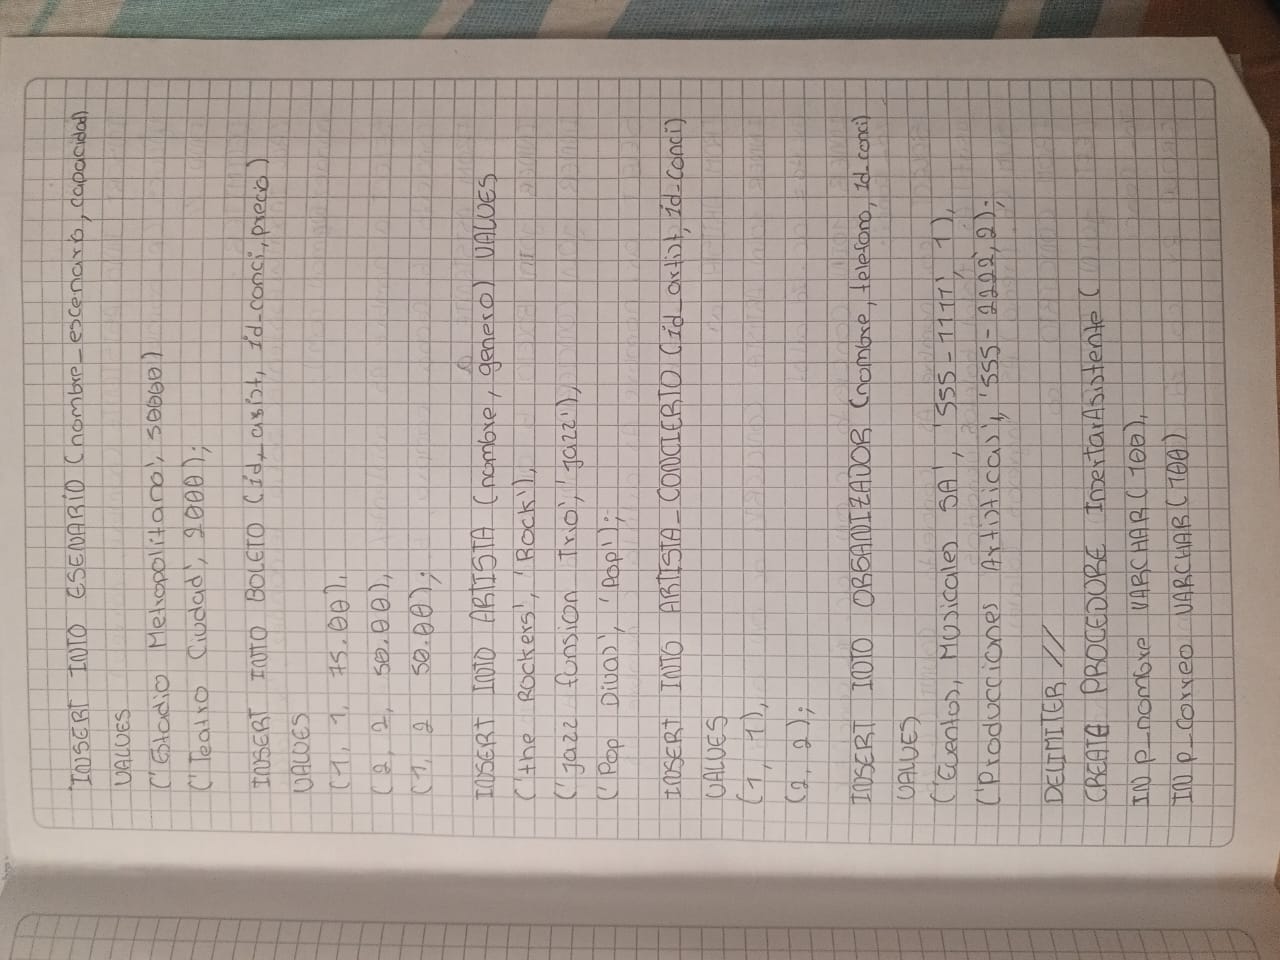 INSERT INTO ESENARIO (nombre_escenario, capacidad)
VALUES
('Estadio Metropolitano', 50000)
('Teatro Ciudad', 2000);
INSERT INTO BOLETO (id_asist, id-conci, precio)
VALUES
(1, 1, 75.00),
(2, 2, 50.00),
(1, 2 50.00);
INSERT INTO ARTISTA (nombre, genero) VALUES
('the Rockers', 'Rock'),
('Jazz funsion Trio', 'jazz'),
('Pop Divas', 'Pop');
INSERT INTO ARTISTA_CONCIERTO (id_artist, id-conci)
VALUES
(1, 1),
(2, 2);
INSERT INTO ORGANIZADOR (nombre, telefono, id_conci)
VALUES
('Eventos, Musicales SA', '555-1111', 1),
('Producciones Artisticas', '555-2222', 2);
DELIMITER //
CREATE PROCEDURE InsertarAsistente (
IN p_nombre VARCHAR(100),
IN p_correo VARCHAR(100)